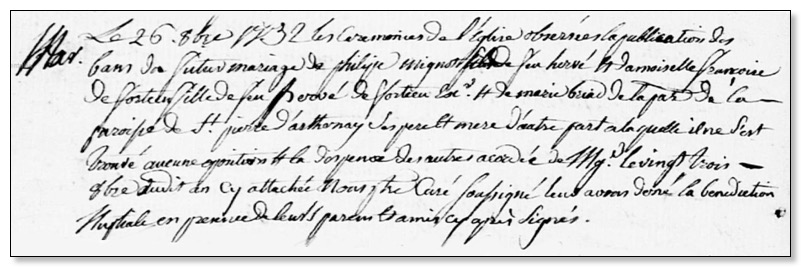 Mar.
Le 26. 8bre 1732 les Ceremonies de l'Eglise observées la publication des
bans du futur mariage de philipe mignot fils de feu hervé Et damoiselle francoise
de fille de feu hervé de Et de marie de la part de la
paroisse de St. pierre d'arthonay ses pere Et mere d'autre part a laquelle il ne s'est
trouvé aucune oposition Et la dispence des autres acordée de Mgr. le vingt trois
8bre dudit an Cy attachée Nous ptre Curé soussigné leur avons doné la benediction
Nuptiale en presence de leurs parens Et amis cy après signés.